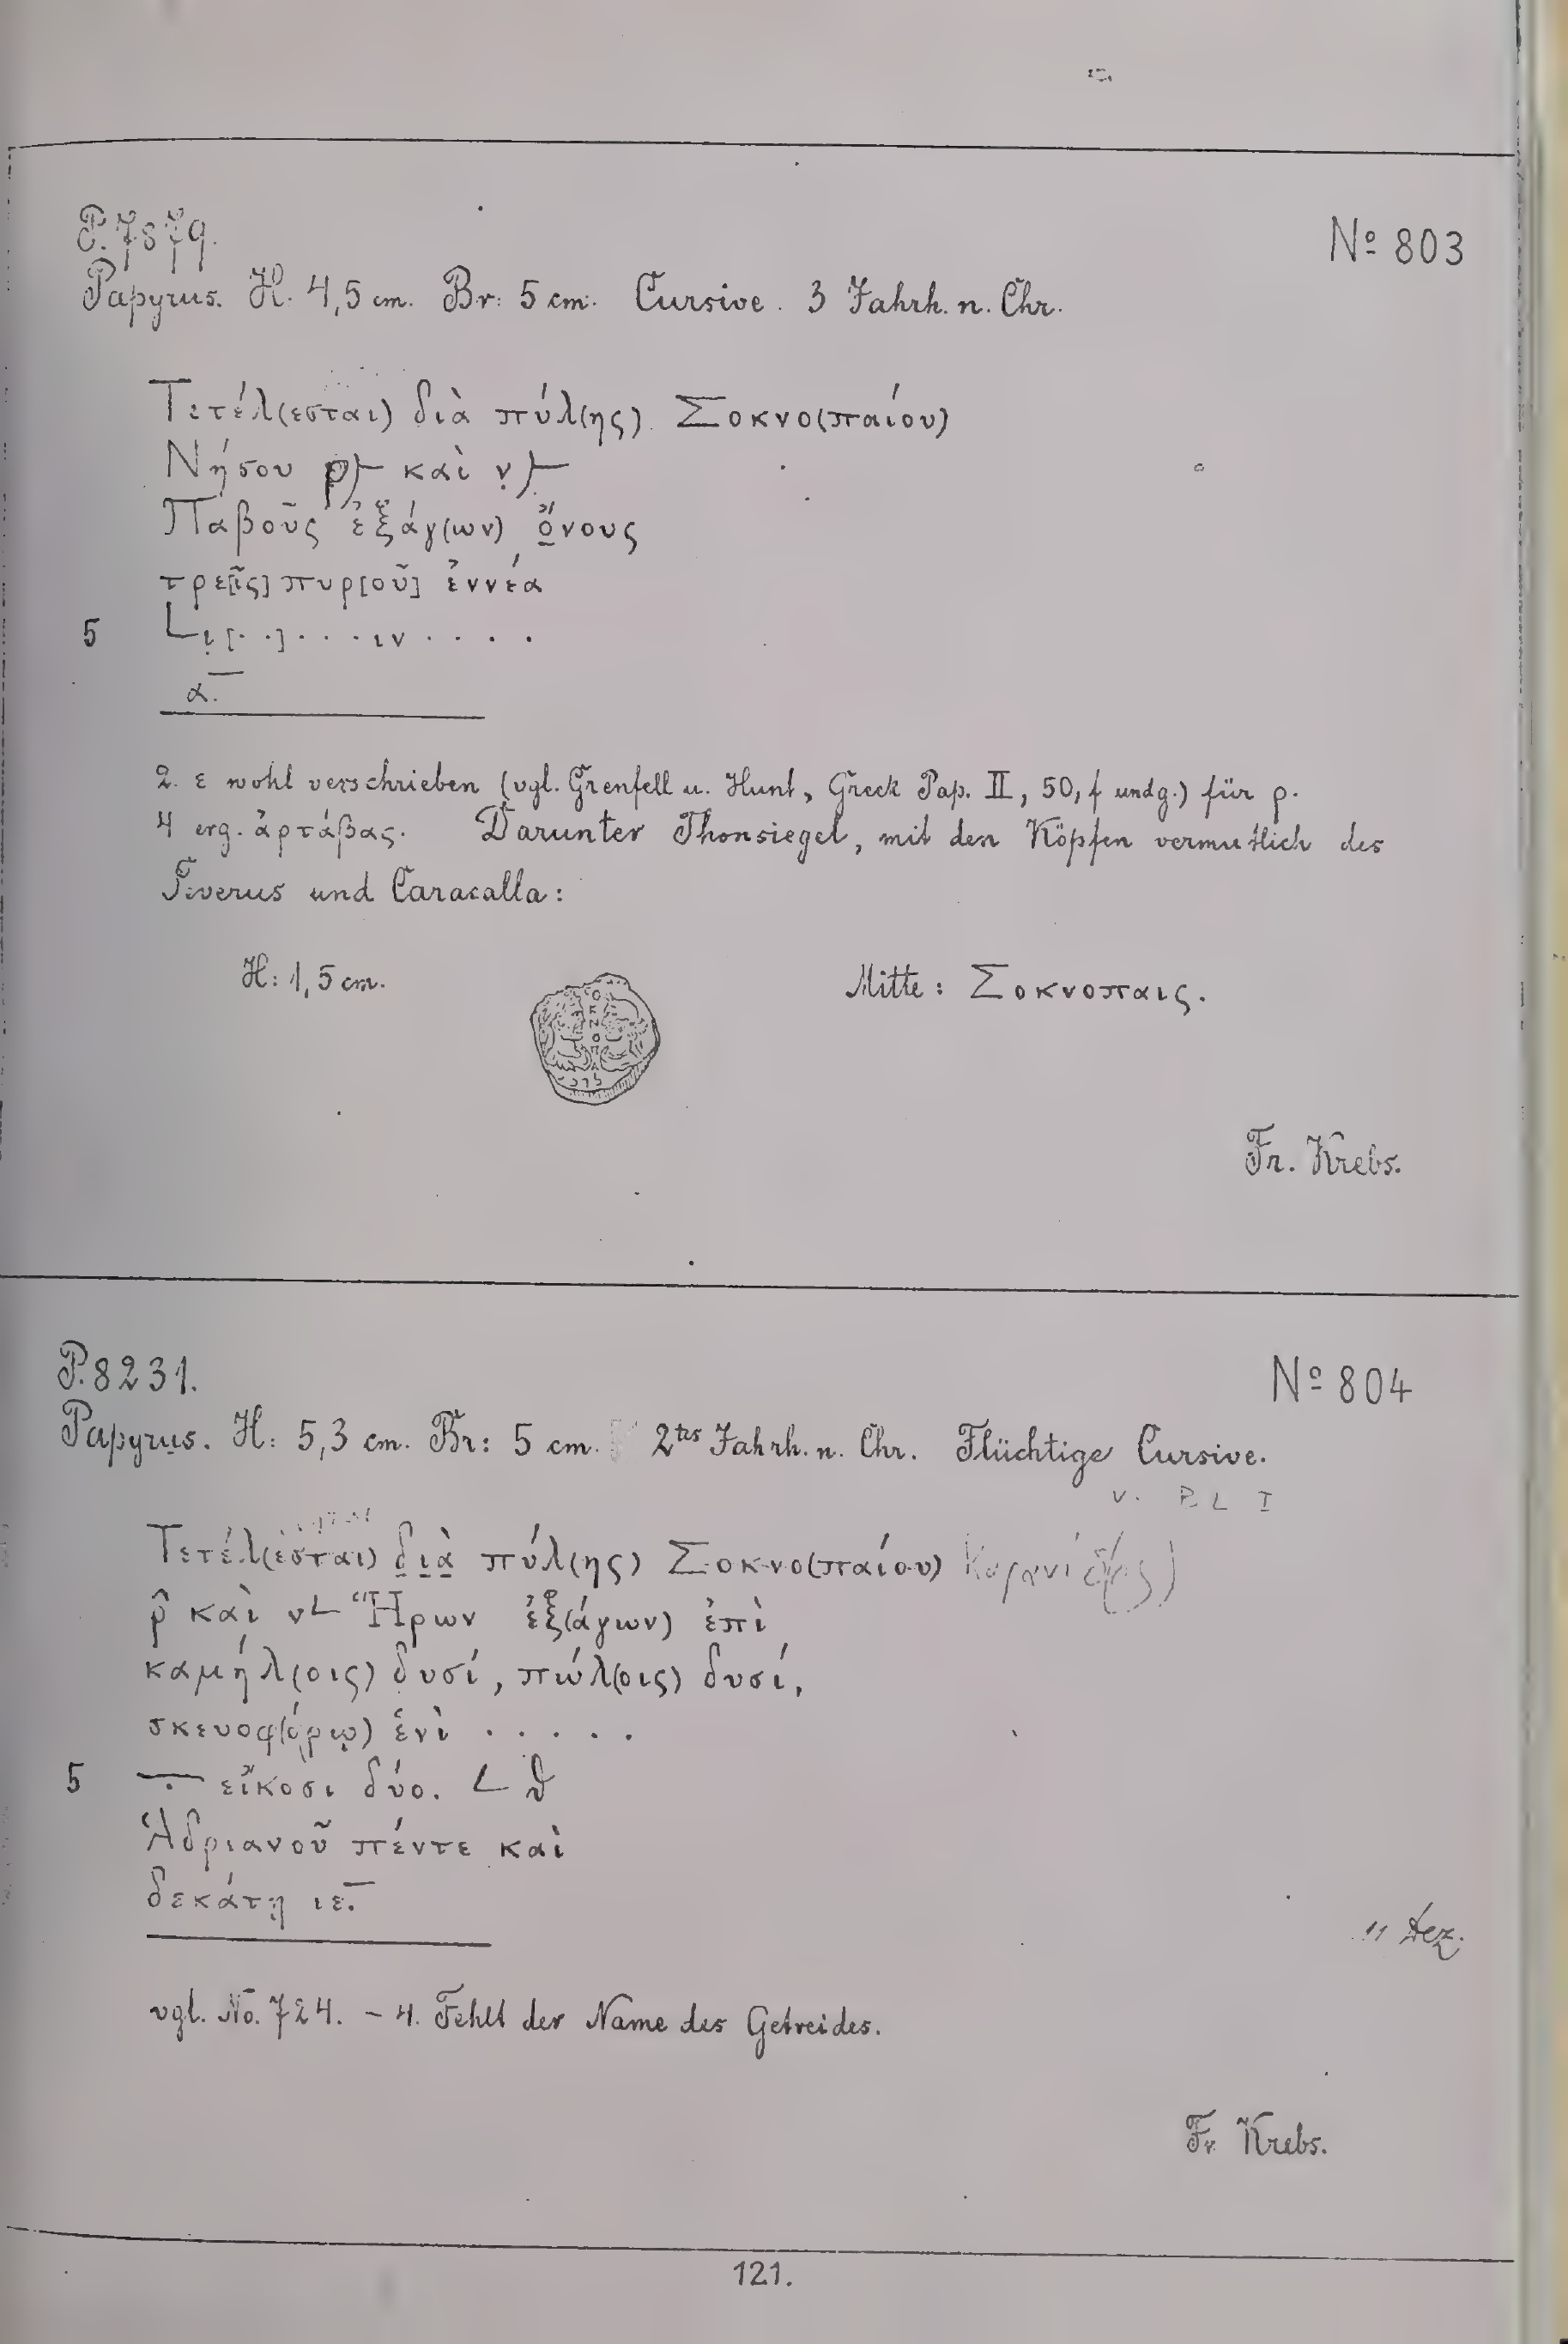 P. 7579.
№ 803
Papyrus. H. 4,5 cm. Br: 5 cm. Cursive. 3 Jahrh. n. Chr.
Τετέλ(εσται) διὰ πύλ(ης) Σοκνο(παίου)
Νήσου ρ⳨ καὶ ν̣⳨
Παβοῦς ἐξάγ(ων) ὄνους
τρε[ῖς] πυρ[οῦ] ἐννέα
5 Lι̣[. .] . . . ιν . . . .
α.‾
2. ε wohl verschrieben (vgl. Grenfell u. Hunt, Greek Pap. II, 50, f und g.) für ρ.
4 erg. ἀρτάβας. Darunter Thonsiegel, mit den Köpfen vermutlich des
Severus und Caracalla:
H: 1,5 cm.
Mitte: Σοκνοπαις.
Fr. Krebs.
P. 8231.
№ 804
Papyrus. H: 5,3 cm. Br: 5 cm. 2tes Jahrh. n. Chr. Flüchtige Cursive.
v. BL I
Τετέλ(εσται) δ̣ι̣ὰ̣ πύλ(ης) Σοκνο(παίου)
ρ̂ καὶ νL Ἥρων ἐξ(άγων) ἐπὶ
καμήλ(οις) δυσί, πώλ(οις) δυσί,
σκευοφ(όρῳ) ἑνὶ . . . . .
5 ∸ εἴκοσι δύο. L θ
Ἁδριανοῦ πέντε καὶ
δεκάτῃ ιε.‾
11 Dez.
vgl. No. 724. – 4. Fehlt der Name des Getreides.
Fr. Krebs.
121.